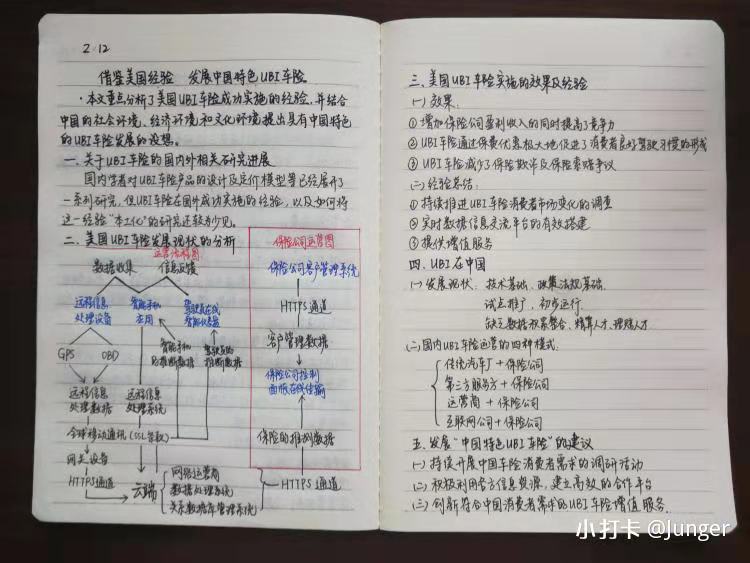 2.12
借鉴美国经验 发展中国特色UBI车险
·本文重点分析了美国UBI车险成功实施的经验,并结合
中国的社会环境、经济环境和文化环境提出具有中国特色
的UBI车险发展的设想。
一、关于UBI车险的国内外相关研究进展
国内学者对UBI车险产品的设计及定价模型等已经展开了
一系列研究,但UBI车险在国外成功实施的经验,以及如何将
这一经验“本土化”的研究还较为少见。
二、美国UBI车险发展现状的分析
运营流程图
数据收集 信息反馈
远程信息
处理设备
智能手机
应用
驾驶员在线
智能手机
驾驶员的
推断数据
GPS OBD
远程信息
处理数据
远程信息
处理系统
全球移动通讯
(SSL参数)
网关设备
HTTPS通道
云端
网络运营商
数据处理系统
关系数据库管理系统
HTTPS通道
保险公司运营图
保险公司客户管理系统
HTTPS通道
客户管理数据
保险公司控制
面版在线传输
保险的推测数据
三、美国UBI车险实施的效果及经验
(一)效果:
①增加保险公司盈利收入的同时提高了竞争力
②UBI车险通过保费优惠极大地促进了消费者良好驾驶习惯的形成
③UBI车险减少了保险欺诈及保险索赔争议
(二)经验总结:
①持续推进UBI车险消费者市场变化的调查
②实时数据信息交流平台的有效搭建
③提供增值服务
四、UBI在中国
(一)发展现状:技术基础、政策法规基础.
试点推广,初步运行.
缺乏数据积累整合、精算人才、理赔人才
(二)国内UBI车险运营的四种模式:
传统汽车厂+保险公司
第三方服务方+保险公司
运营商+保险公司
互联网公司+保险公司
五、发展“中国特色UBI车险”的建议
(一)持续开展中国车险消费者需求的调研活动
(二)积极利用官方信息资源,建立高效的合作平台
(三)创新符合中国消费者需求的UBI车险增值服务.
小打卡 @Junger